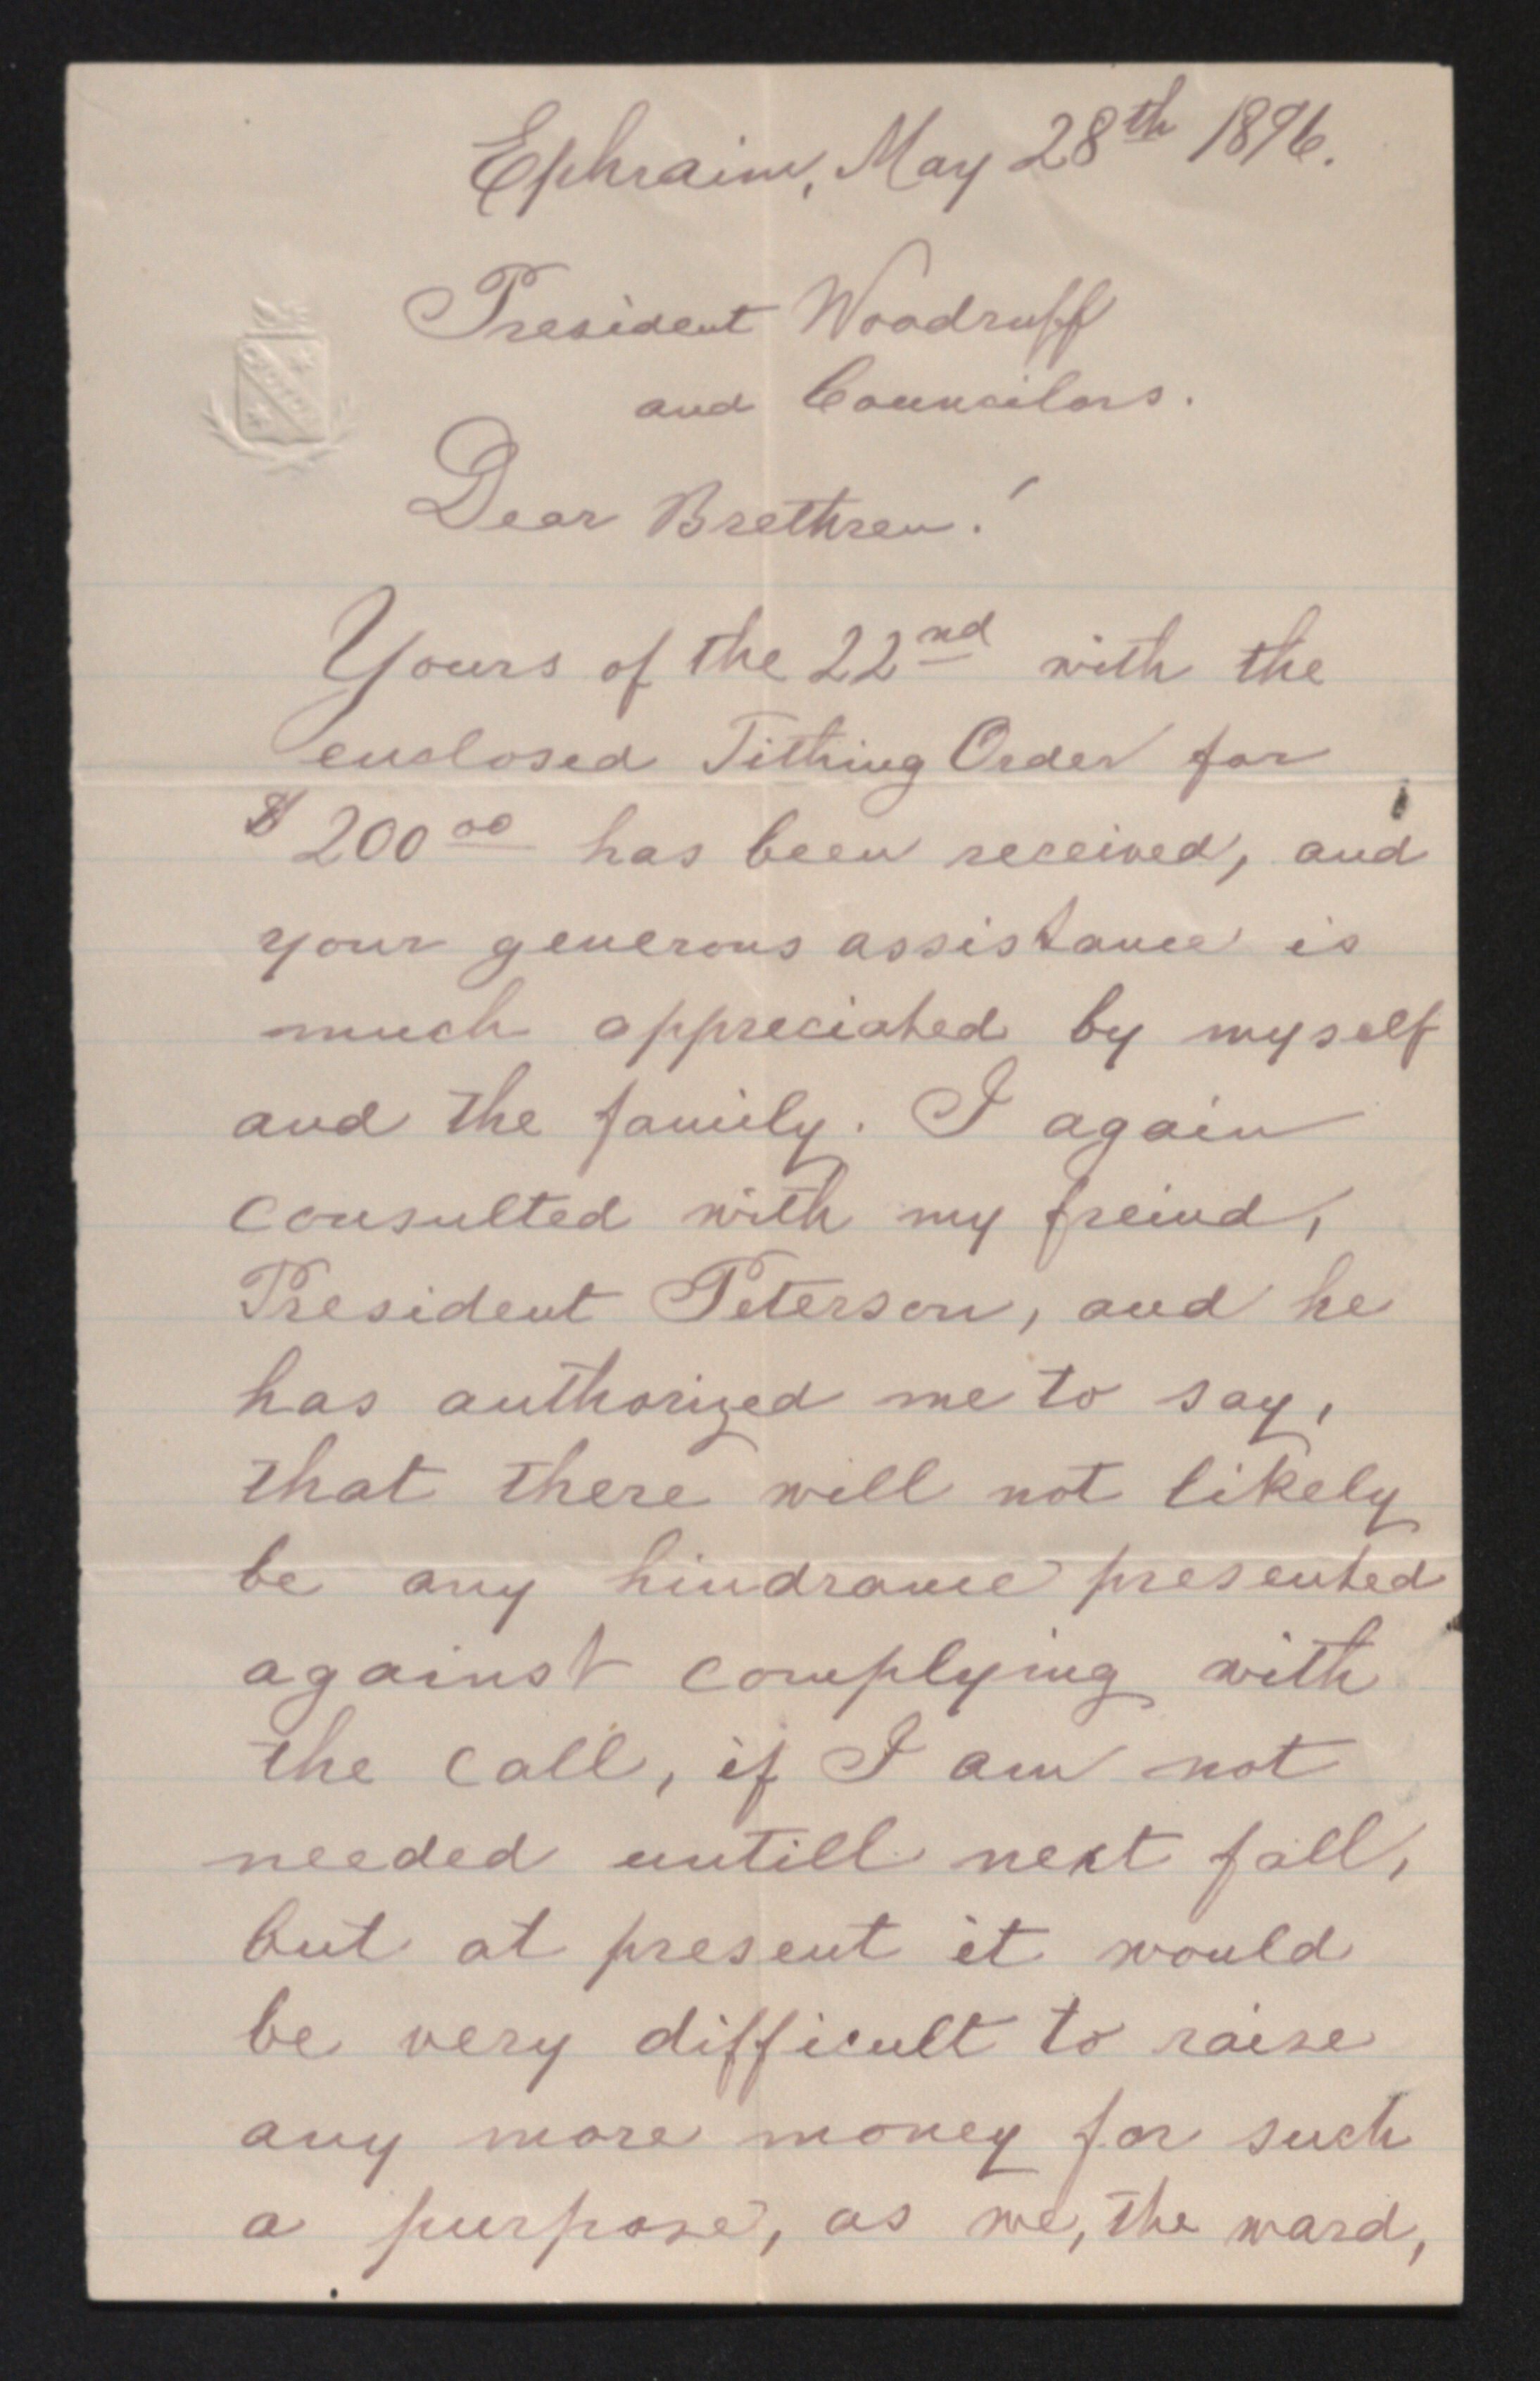 Ephraim, May 28th 1896.
President Woodruff
and Councilors.
Dear Brethren!
Yours of the 22nd with the
enclosed Tithing Order for
$200 00 has been received, and
your generous assistance is
much appreciated by myself
and the family. I again
consulted with my freind,
President Peterson, and he
has authorized me to say,
that there will not likely
be any hindrance presented
against complying with
the call, if I am not
needed untill next fall,
but at present it would
be very difficult to raise
any more money for such
a purpose, as we, the ward,